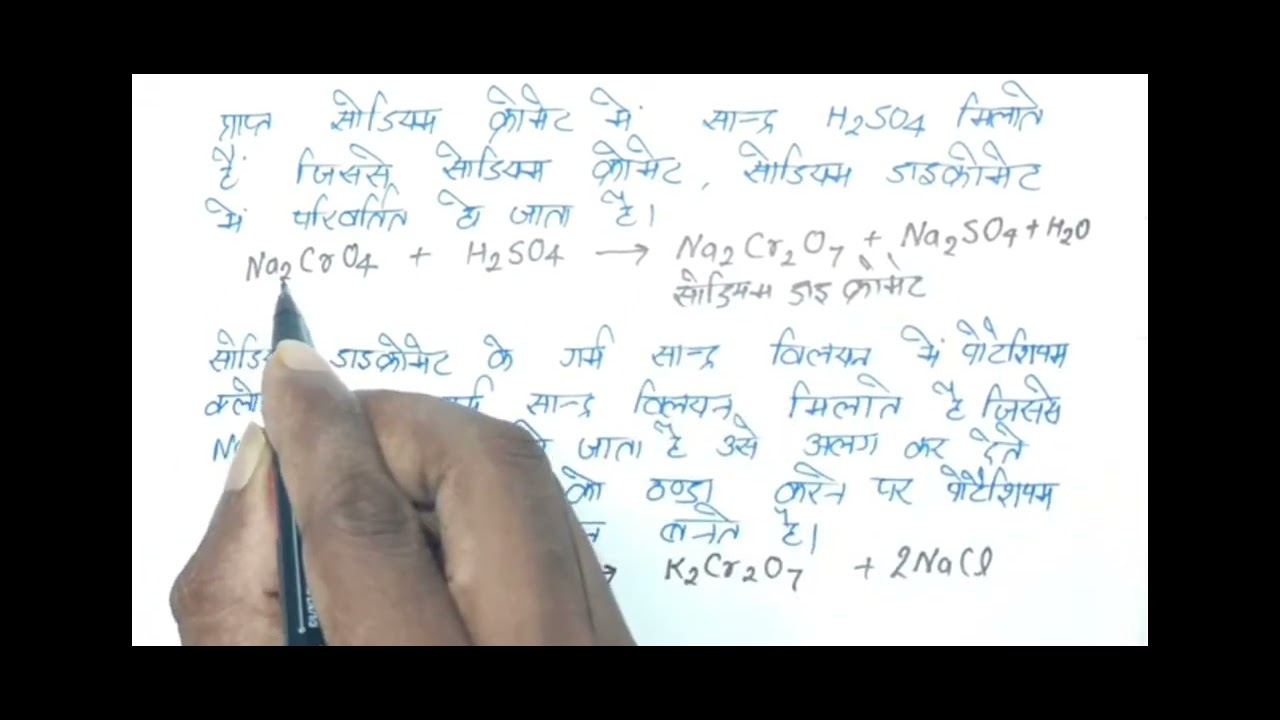 प्राप्त सोडियम क्रोमेट में सान्द्र H2SO4 मिलाते
हैं जिससे सोडियम क्रोमेट, सोडियम डाइक्रोमेट
में परिवर्तित हो जाता है।
Na2CrO4 + H2SO4 → Na2Cr2O7 + Na2SO4 + H2O
सोडियम डाइ क्रोमेट
डाइक्रोमेट के गर्म सान्द्र विलयन में पोटैशियम
सान्द्र विलयन मिलाते है जिससे
जाता है उसे अलग कर देते
को ठण्डा करने पर पोटैशियम
बनते है।
→ K2Cr2O7 + 2NaCl